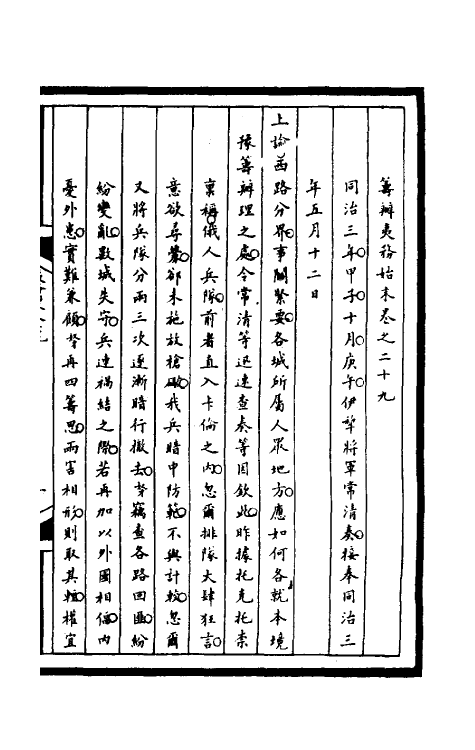 籌辦夷務始末卷之二十九
同治三年甲子十月庚午伊犂將軍常清奏接奉同治三
年五月十二日
上諭西路分界事關緊要各城所屬人眾地方應如何各就本境
豫籌辦理之處令常清等迅速查奏等因欽此昨據托克托柰
稟稱俄人兵隊前者直入卡倫之內忽爾排隊大肆狂言
意欲尋釁卻未施放槍礮我兵暗中防範不與計較忽爾
又將兵隊分兩三次逐漸暗行撤去等竊查各路回匪紛
紛變亂數城失守兵連禍結之際若再加以外圉相偪內
憂外患實難兼顧等再四籌思兩害相形則取其輕權宜